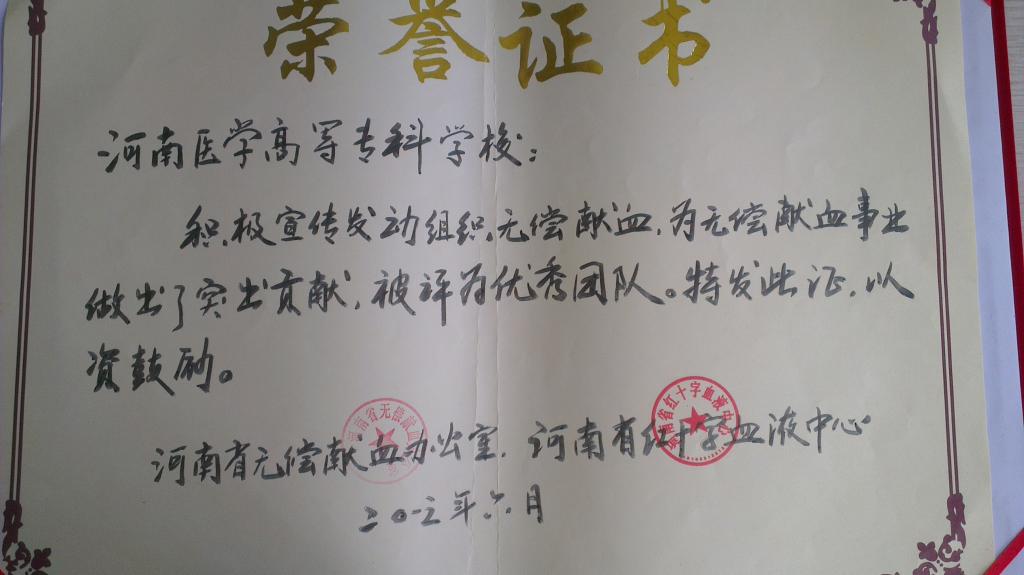 荣誉证书
河南医学高等专科学校：
积极宣传发动组织无偿献血，为无偿献血事业
做出了突出贡献，被评为优秀团队。特发此证，以
资鼓励。
河南省无偿献血办公室，河南省红十字血液中心
二〇一三年六月
河南省无偿献血
河南省红十字血液中心